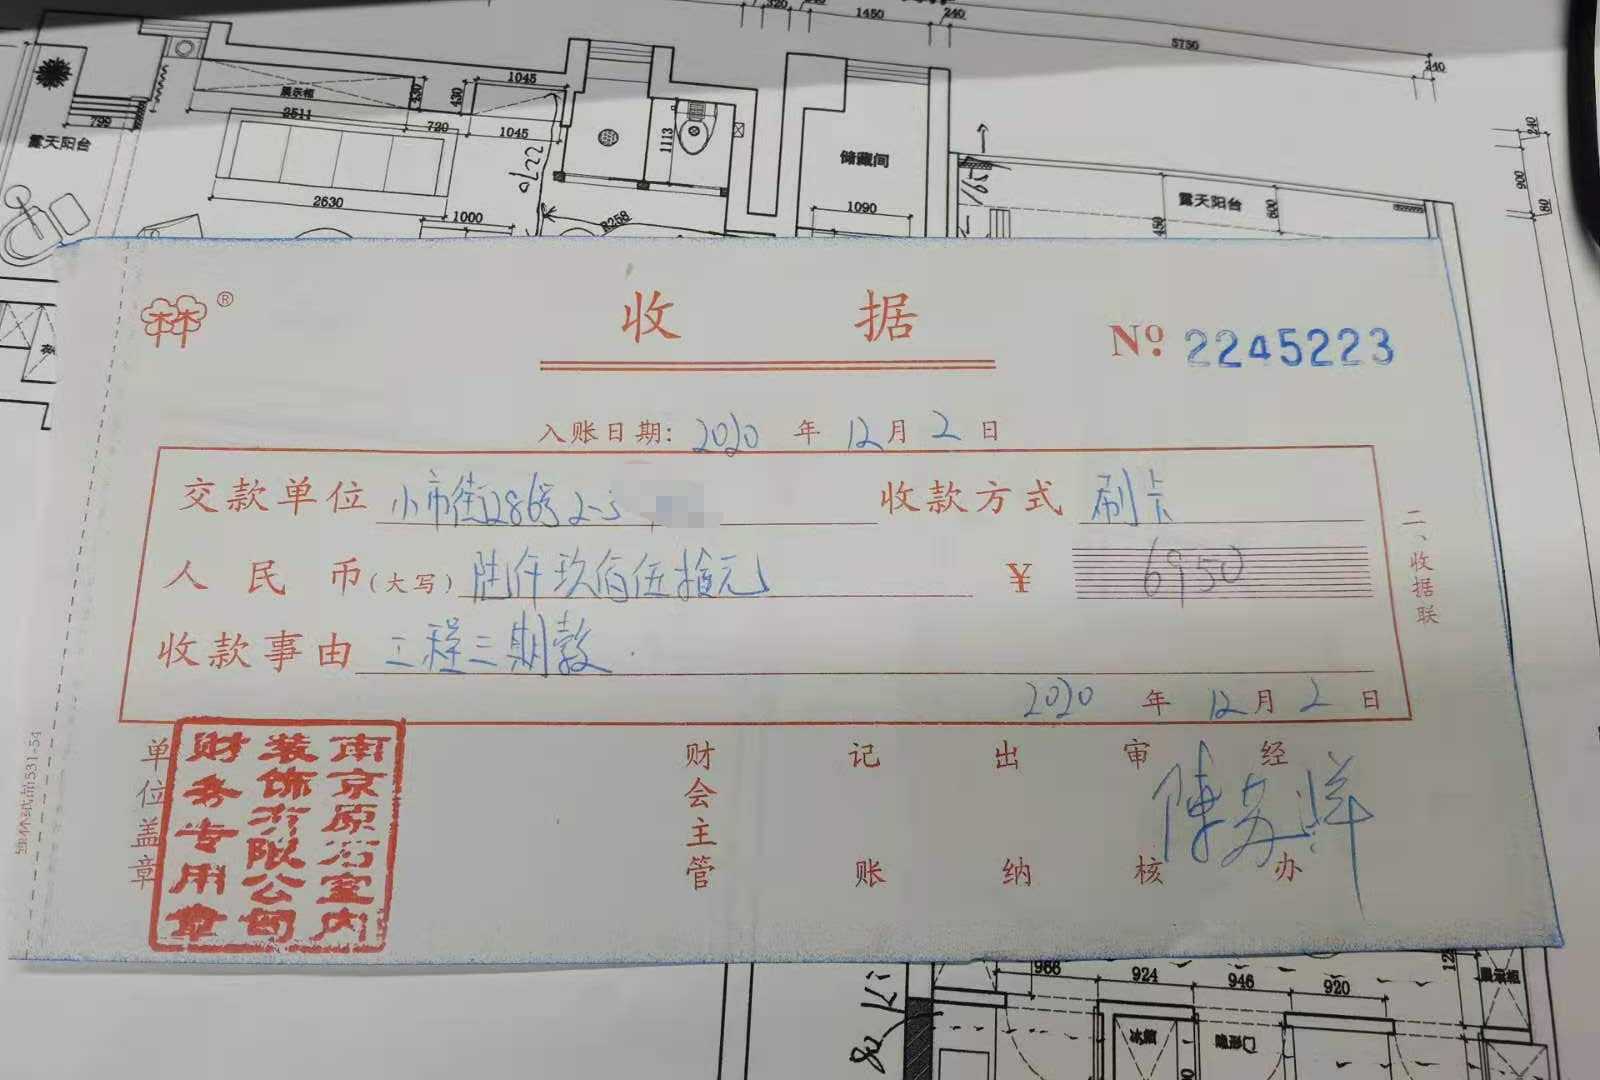 320
1450
240
5750
240
1045
展示柜
430
430
2511
799
720
1045
1113
露天阳台
储藏间
240
900
60
2630
1000
R258
1090
露天阳台
600
450
收 据
®
Nº 2245223
入账日期: 2020 年 12 月 2 日
交款单位 小市街286号2-3 收款方式 刷卡
人民币(大写) 陆仟玖佰伍拾元 ¥ 6950
收款事由 工程三期款
2020 年 12 月 2 日
二、收据联
单位盖章
南京原石室内
装饰有限公司
财务专用章
财会主管
记账
出纳
审核
经办
陳苏洋
966
924
946
920
展示柜
冰箱
隐形门